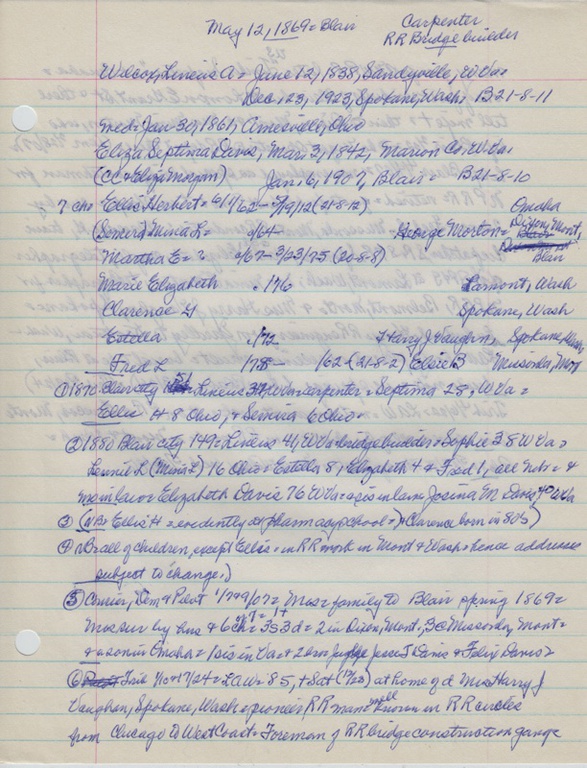 May 12, 1869 = Blair Carpenter
RR Bridge builder
Wilcox, Lineus A = June 12, 1838, Sandyville, W Va =
Dec. 23, 1923, Spokane, Wash. B21-8-11
med = Jan 30, 1861, Amesville, Ohio
Eliza Septima Davis, Mar. 3, 1842, Marion Co, W Va =
(CC & Eliz Morgan) Jan. 6, 1907, Blair = B21-8-10
7 ch = Ellis Herbert = 6/1/62 - 9/9/12 (21-8-12) Omaha
(Semira) Minia L = /64 George Morton = Dixon, Mont,
Blair
Martha E = ? /67 - 9/23/75 (21-8-8)
Marie Elizabeth /76 Lamont, Wash
Clarence Spokane, Wash
Estella /72 Harry J Vaughn, Spokane, Wash
Fred L /78 - /62 (21-8-2) Elsie B Missoula, Mont
① 1870 Blair city Lineus W Va = carpenter = Septima 28, W Va =
Ellis H 8 Ohio, & Semira 6 Ohio =
② 1880 Blair city 149 = Lineus 41, W Va = bridge builder = Sophie 38 W Va =
Lennie L (Minia L) 16 Ohio = Estella 8, Elizabeth 4 & Fred 1, all Nebr = &
mo in law = Elizabeth Davis 76 W Va = & sis in law Josina M Davis 40 W Va
③ (NB = Ellis H = evidently at pharmacy school =) Clarence born in 80's)
④ all of children, except Ellis = in RR work in Mont & Wash = hence addresses
subject to change.)
⑤ Courier, Dem, & Pilot 1/7 & 9/07 = Mos = family to Blair spring 1869 =
Mos sur by hus & 6 ch = 3s 3d = 2 in Dixon, Mont, 3 @ Missoula, Mont =
& a son in Omaha = 1 sis in Va & 2 bros Jesse T Davis & Felix Davis =
⑥ Trib No 1/7/24 = LAW = 85, + Sat (12/23) at home of d Mrs Harry J
Vaughn, Spokane, Wash = pioneer RR man = well known in RR circles
from Chicago to West Coast = Foreman of RR bridge construction gangs